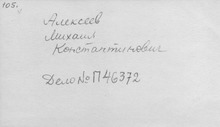 105.
Алексеев
Михаил
Константинович
Дело № П46372